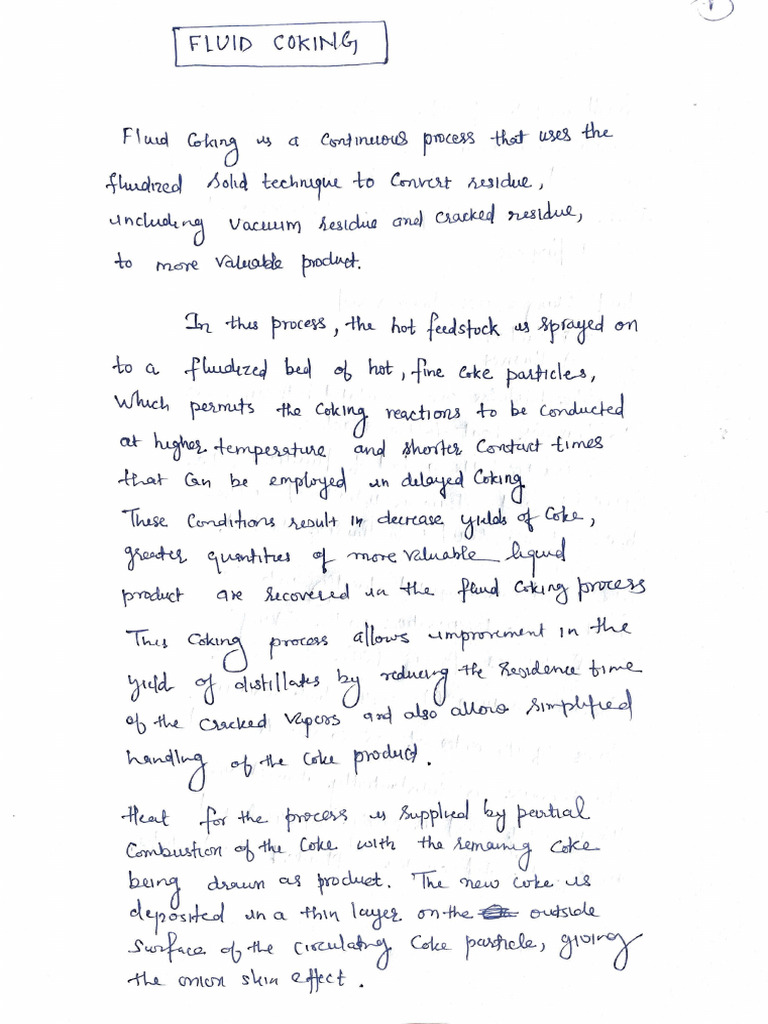 1
FLUID COKING
Fluid Coking is a continuous process that uses the
fluidized solid technique to convert residue,
including vacuum residue and cracked residue,
to more valuable product.
In this process, the hot feedstock is sprayed on
to a fluidized bed of hot, fine coke particles,
Which permits the coking reactions to be conducted
at higher temperature and shorter contact times
that can be employed in delayed Coking
These conditions result in decrease yields of coke,
greater quantities of more valuable liquid
product are recovered in the fluid coking process
This coking process allows improvement in the
yield of distillates by reducing the residence time
of the cracked vapors and also allows simplified
handling of the coke product.
Heat for the process is supplied by partial
Combustion of the coke with the remaing coke
being drawn as product. The new coke is
deposited in a thin layer on the outside
surface of the circulating coke particle, giving
the onion skin effect.